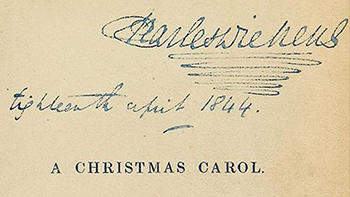 Charles Dickens
Eighteenth April 1844.
A CHRISTMAS CAROL.